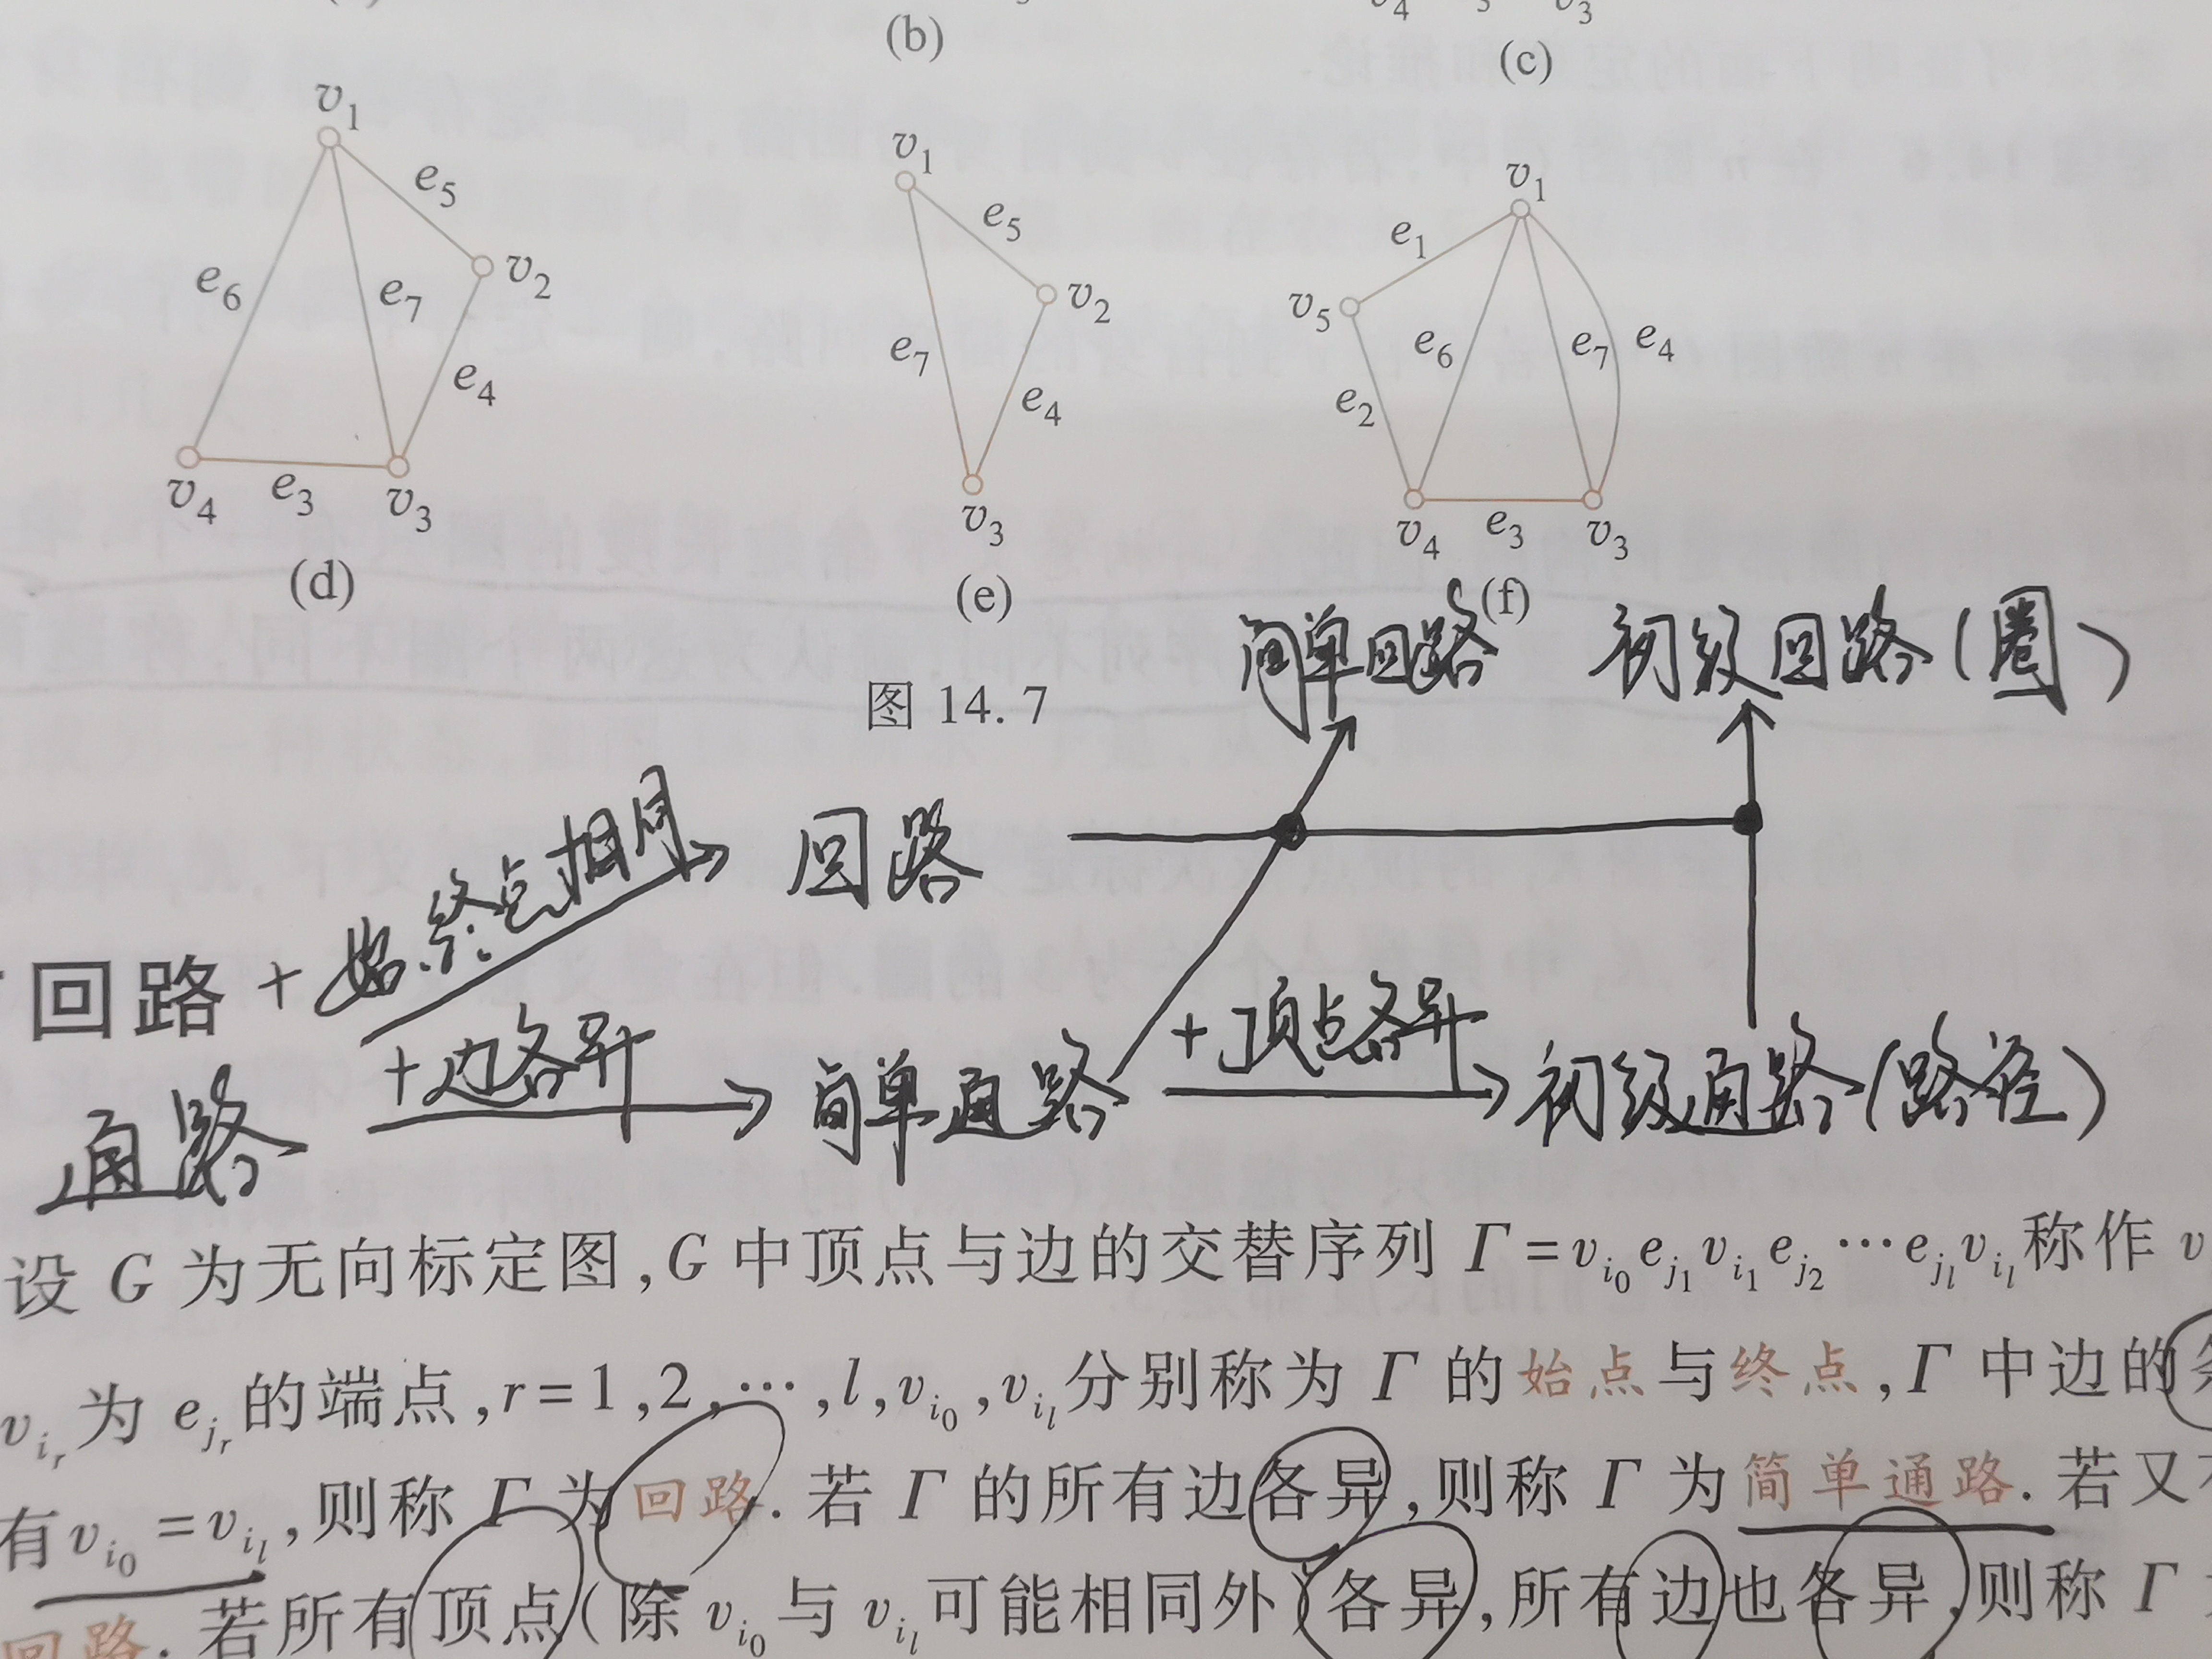 (b)
v4 3 v3
(c)
v1
e5
v2
e6
e7
e4
v4 e3 v3
(d)
v1
e5
v2
e7
e4
v3
(e)
v1
e1
v5
e6 e7 e4
e2
v4 e3 v3
(f)
图 14.7
简单回路 初级回路(圈)
+始.终.点相同
回路
回路
通路
+边各异
简单通路
+顶点各异
初级通路(路径)
设 G 为无向标定图,G 中顶点与边的交替序列 Γ=v_{i0}e_{j1}v_{i1}e_{j2}…e_{jl}v_{il}称作 v
v_{ir}为 e_{jr}的端点,r=1,2,…,l,v_{i0},v_{il}分别称为 Γ 的始点与终点,Γ 中边的
有v_{i0}=v_{il},则称 Γ 为回路.若 Γ 的所有边各异,则称 Γ 为简单通路.若又
回路.若所有顶点(除 v_{i0}与 v_{il}可能相同外)各异,所有边也各异,则称 Γ